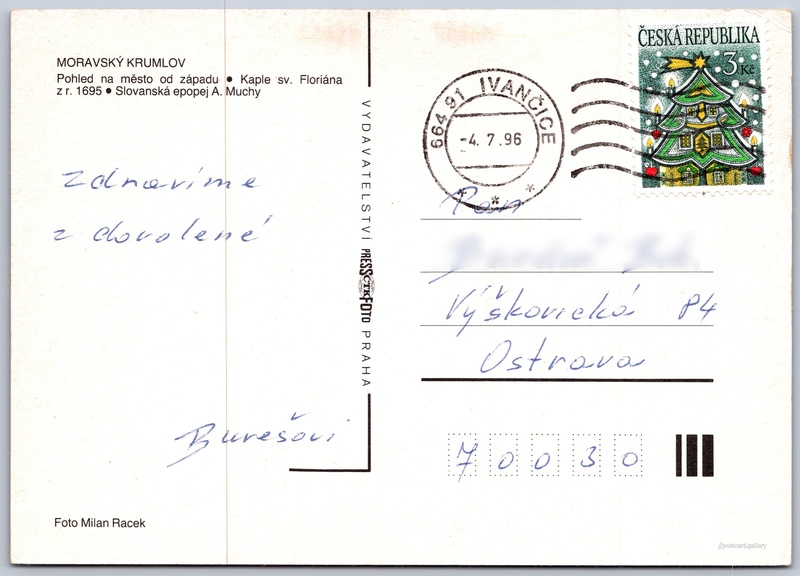 MORAVSKÝ KRUMLOV
Pohled na město od západu ● Kaple sv. Floriána
z r. 1695 ● Slovanská epopej A. Muchy
zdravíme
z dovolené
Burešovi
Foto Milan Racek
VYDAVATELSTVÍ PRESSFOTO PRAHA
ČTK
664 91 IVANČICE
-4.7.96
ČESKÁ REPUBLIKA
3 Kč
Pan
Výškovická 84
Ostrava
70030
postcard.gallery